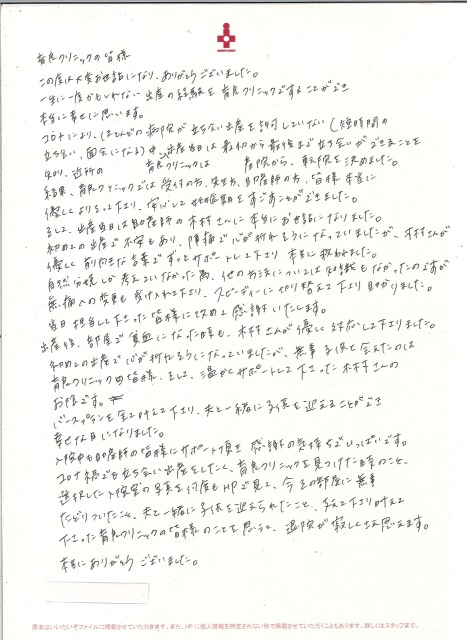 育良クリニックの皆様
この度は大変お世話になり、ありがとうございました。
一生に一度かもしれない出産の経験を育良クリニックですることができ
本当に幸せに思います。
コロナにより、ほとんどの病院が立ち会い出産を許可していない(短時間の
立ち会い、面会になる)中、出産当日は最初から最後まで立ち会いができることを
知り、近所の 産院から、転院を決めました。
育良クリニックは
結果、育良クリニックでは受付の方、先生方、助産師の方、皆様本当に
優しくよりそって下さり、安心して妊娠期を すごすことができました。
そして、出産当日は助産師の木村さんに本当にお世話になりました。
初めての出産で不安もあり、陣痛で心が折れそうになっていましたが、木村さんが
優しく前向きな言葉でずっとサポートして下さり本当に救われました。
自然分娩しか考えていなかった為、他の方法については知識もなかったのですが
無痛への変更も受け入れて下さり、スピーディーに切り替えて下さり助かりました。
当日担当して下さった皆様に改めて感謝いたします。
出産後、部屋で貧血になった時も、木村さんが優しく対応して下さりました。
初めての出産で心が折れそうになっていましたが、無事子供と会えたのは
育良クリニックの皆様、そして、温かくサポートして下さった木村さんの
お陰です。
バースプランを全て叶えて下さり、夫と一緒に子供を迎えることができ
幸せな日になりました。
入院中も助産師の皆様にサポート頂き 感謝の気持ちでいっぱいです。
コロナ禍でも立ち会い出産をしたこと、育良クリニックを見つけた時のこと、
選択した入院室の写真を何度もHPで見て、今その部屋に無事
たどりついたこと、夫と一緒に子供を迎えられたこと、支えて下さり叶えて
下さった育良クリニックの皆様のことを思うと、退院が寂しくさえ思えます。
本当にありがとうございました。
原本はいいたいぞファイルに掲載させていただきます。また、HPに個人情報を特定されない形で掲載させていただくこともあります。詳しくはスタッフまで。